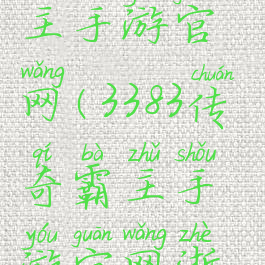 主手游官
wǎng chuán
网(3383传
qí bà zhǔ shǒu
奇霸主手
yóu guān wǎng zhè
游官网浙